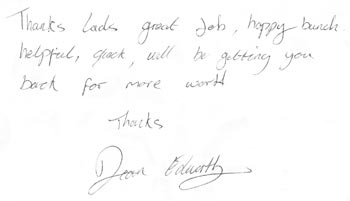 Thanks lads great Job, happy bunch
helpful, quick, will be getting you
back for more work
Thanks
Dean